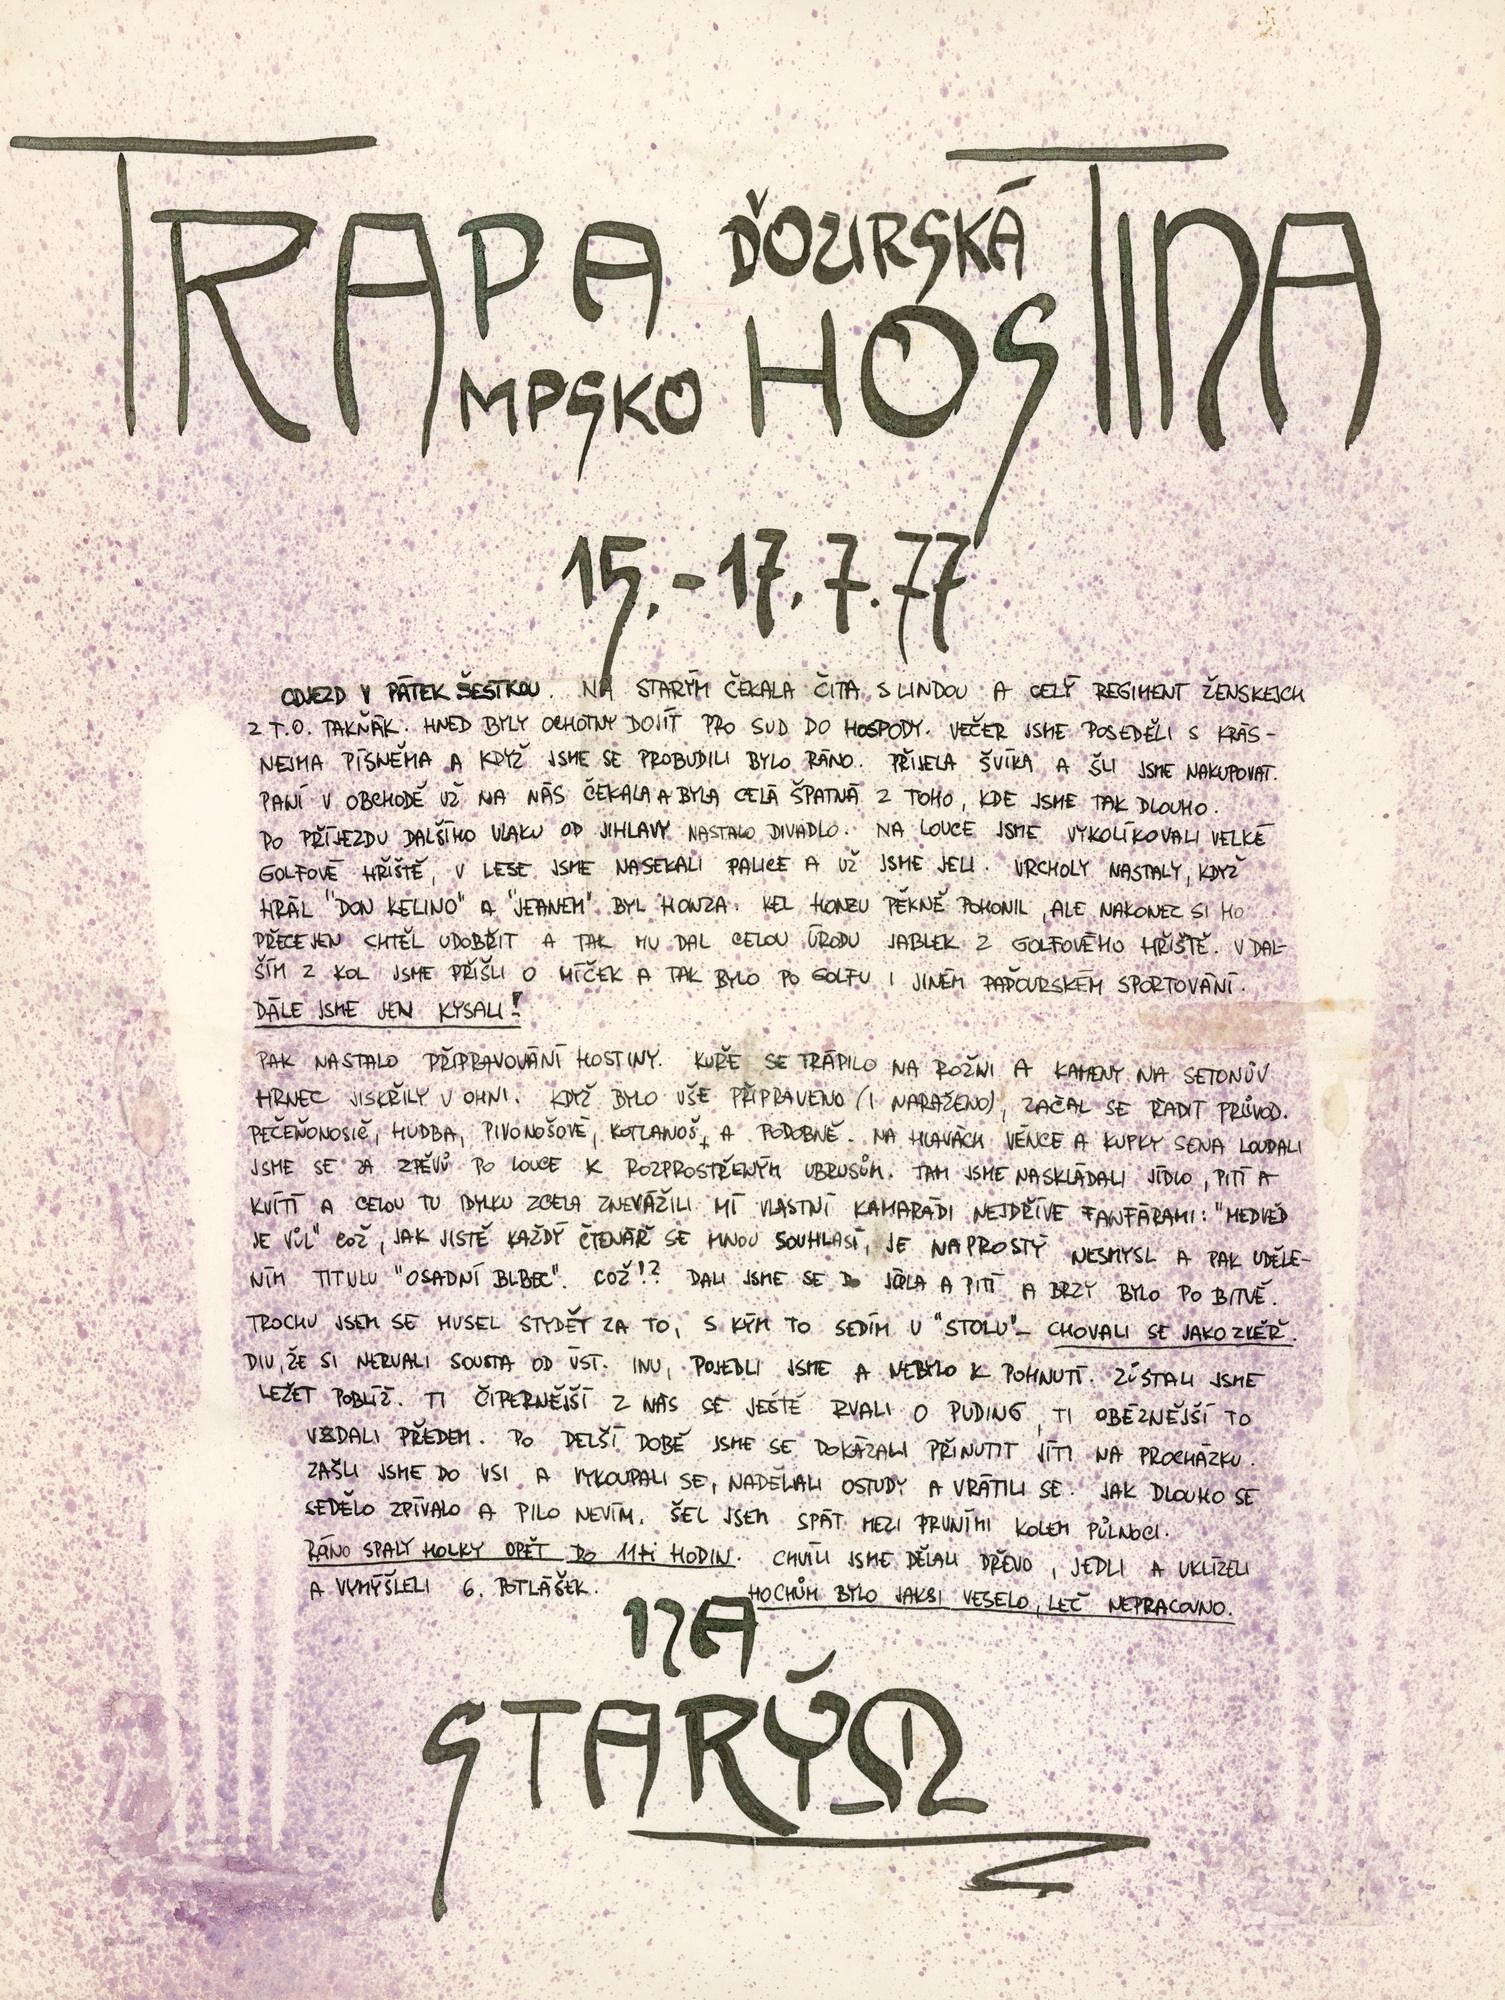 TRAPA ĎOURSKÁ
MPSKO HOSTINA
15.-17.7.77
ODJEZD V PÁTEK ŠESTKOU. NA STARÝM ČEKALA ČITA S LINDOU A CELÝ REGIMENT ŽENSKEJCH
Z T.O. TAKŇÁK. HNED BYLY OCHOTNY DOJÍT PRO SUD DO HOSPODY. VEČER JSME POSEDĚLI S KRÁS-
NEJMA PÍSNĚMA A KDYŽ JSME SE PROBUDILI BYLO RÁNO. PŘIJELA ŠVÍKA A ŠLI JSME NAKUPOVAT.
PANÍ V OBCHODĚ UŽ NA NÁS ČEKALA A BYLA CELÁ ŠPATNÁ Z TOHO, KDE JSME TAK DLOUHO.
PO PŘÍJEZDU DALŠÍHO VLAKU OD JIHLAVY NASTALO DIVADLO. NA LOUCE JSME VYKOLÍKOVALI VELKÉ
GOLFOVÉ HŘIŠTĚ, V LESE JSME NASEKALI PALICE A UŽ JSME JELI. VRCHOLY NASTALY, KDYŽ
HRÁL "DON KELINO" A "JEANEM" BYL HONZA. KEL HONZU PĚKNĚ POHONIL, ALE NAKONEC SI HO
PŘECEJEN CHTĚL UDOBŘIT A TAK MU DAL CELOU ÚRODU JABLEK Z GOLFOVÉHO HŘIŠTĚ. V DAL-
ŠÍM Z KOL JSME PŘIŠLI O MÍČEK A TAK BYLO PO GOLFU I JINÉM PAĎOURSKÉM SPORTOVÁNÍ.
DÁLE JSME JEN KYSALI!
PAK NASTALO PŘIPRAVOVÁNÍ HOSTINY. KUŘE SE TRÁPILO NA ROŽNI A KAMENY NA SETONŮV
HRNEC JISKŘILY V OHNI. KDYŽ BYLO VŠE PŘIPRAVENO (I NARAŽENO), ZAČAL SE ŘADIT PRŮVOD.
PEČEŇONOSIČ, HUDBA, PIVONOŠOVÉ, KOTLANOŠ, A PODOBNĚ. NA HLAVÁCH VĚNCE A KUPKY SENA LOUDALI
JSME SE ZA ZPĚVŮ PO LOUCE K ROZPROSTŘENÝM UBRUSŮM. TAM JSME NASKLÁDALI JÍDLO, PITÍ A
KVÍTÍ A CELOU TU IDYLKU ZCELA ZNEVÁŽILI MÍ VLASTNÍ KAMARÁDI NEJDŘÍVE FANFÁRAMI: "MEDVĚD
JE VŮL" COŽ, JAK JISTĚ KAŽDÝ ČTENÁŘ SE MNOU SOUHLASÍ, JE NAPROSTÝ NESMYSL A PAK UDĚLE-
NÍM TITULU "OSADNÍ BLBEC". COŽ!? DALI JSME SE DO JÍDLA A PITÍ A BRZY BYLO PO BITVĚ.
TROCHU JSEM SE MUSEL STYDĚT ZA TO, S KÝM TO SEDÍM U "STOLU" - CHOVALI SE JAKO ZVĚŘ.
DIV, ŽE SI NERVALI SOUSTA OD ÚST. INU, POJEDLI JSME A NEBYLO K POHNUTÍ. ZŮSTALI JSME
LEŽET POBLÍŽ. TI ČIPERNĚJŠÍ Z NÁS SE JEŠTĚ RVALI O PUDING, TI OBÉZNĚJŠÍ TO
VZDALI PŘEDEM. PO DELŠÍ DOBĚ JSME SE DOKÁZALI PŘINUTIT JÍTI NA PROCHÁZKU.
ZAŠLI JSME DO VSI A VYKOUPALI SE, NADĚLALI OSTUDY A VRÁTILI SE. JAK DLOUHO SE
SEDĚLO ZPÍVALO A PILO NEVÍM. ŠEL JSEM SPÁT MEZI PRVNÍMI KOLEM PŮLNOCI.
RÁNO SPALY HOLKY OPĚT DO 11TI HODIN. CHVÍLI JSME DĚLALI DŘEVO, JEDLI A UKLÍZELI
A VYMÝŠLELI 6. POTLÁŠEK. HOCHŮM BYLO JAKSI VESELO, LEČ NEPRACOVNO.
NA
STARÝM